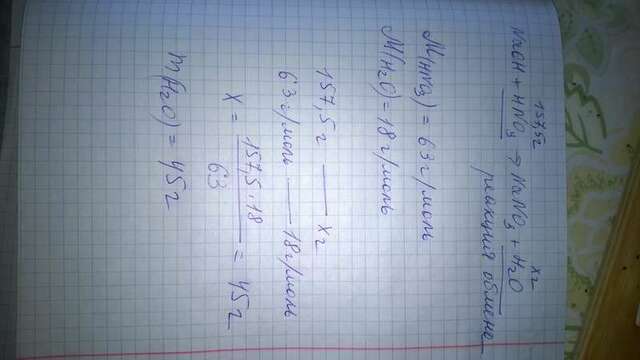 157,5г хг
NaOH + HNO₃ → NaNO₃ + H₂O
реакция обмена
M(HNO₃) = 63 г/моль
M(H₂O) = 18 г/моль
157,5 г — х г
63 г/моль — 18 г/моль
x = 157,5 · 18 / 63 = 45 г
m(H₂O) = 45 г